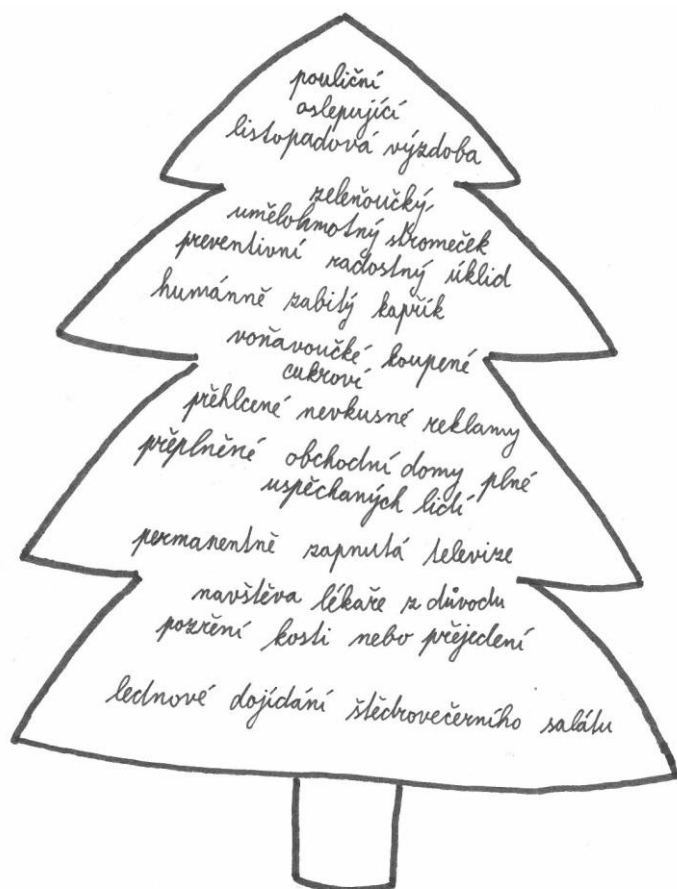 pouliční
oslepující
listopadová výzdoba
zeleňoučký
umělohmotný stromeček
preventivní radostný úklid
humánně zabitý kapřík
voňavoučké koupené
cukroví
přehlcené nevkusné reklamy
přeplněné obchodní domy plné
uspěchaných lidí
permanentně zapnutá televize
navštěva lékaře z důvodu
pozření kosti nebo přejedení
lednové dojídání štědrovečerního salátu